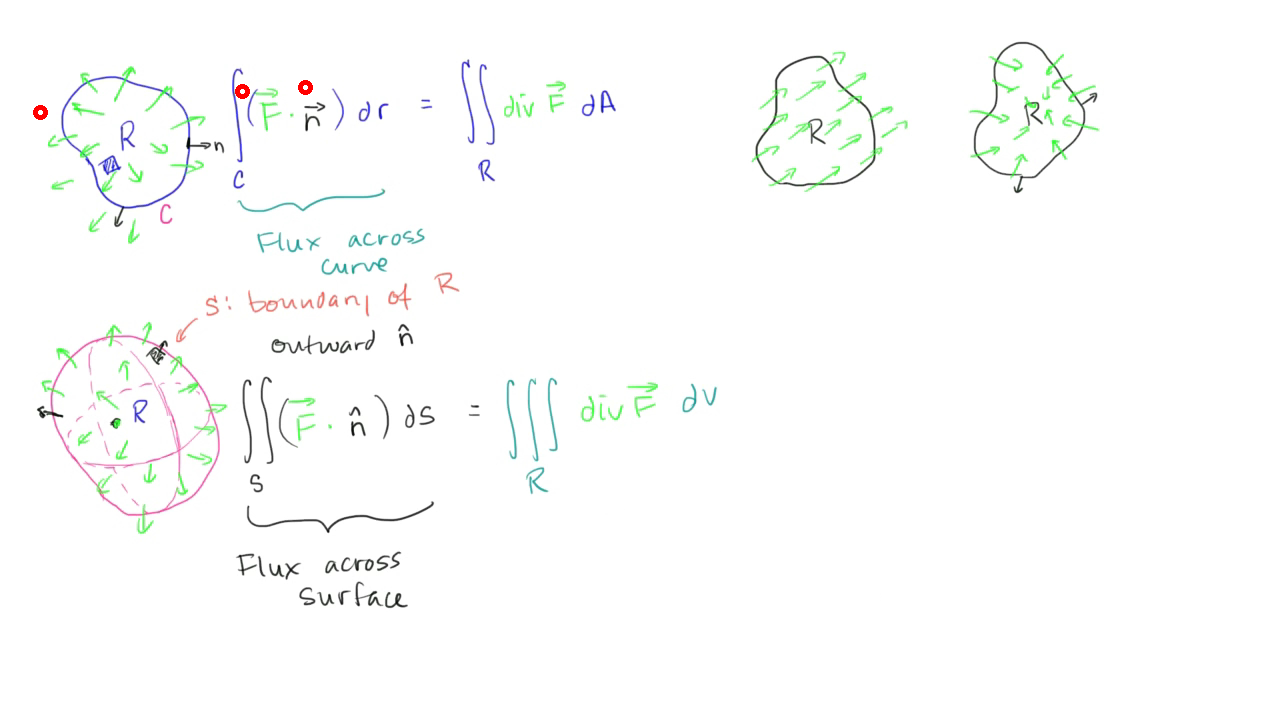 R
n
C
∫_C (F⃗ · n⃗) dr = ∬_R div F⃗ dA
Flux across
curve
R
R
S: boundary of R
outward n̂
R
∬_S (F⃗ · n̂) ds = ∭_R div F⃗ dv
Flux across
surface